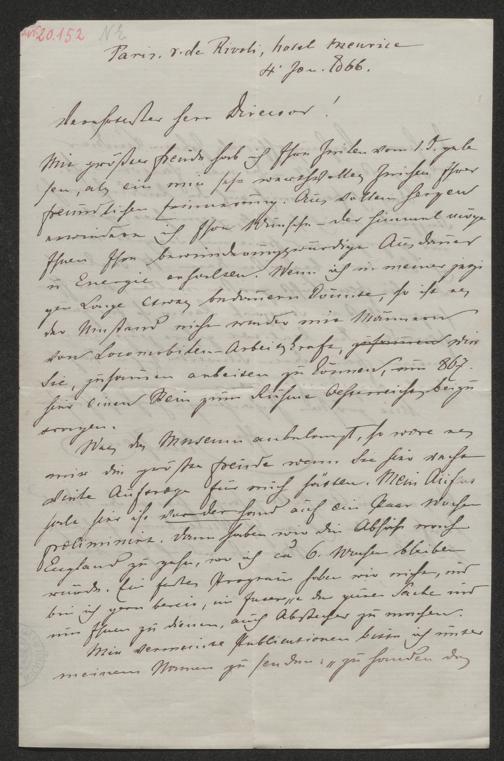 20.152 NE
Paris. r. de Rivoli, hotel Meurice
4 Jan. 1866.
Herr Director!
Mit größter Freude hab ich Ihre Zeilen vom 1. J. gele
sen, als ein mir sehr werthvolles Zeichen Ihrer
freundlichen Erinnerung. Aus vollem Herzen
erwiedere ich Ihre Wünsche – der Himmel möge
Ihnen Ihre bewunderungswürdige Ausdauer
u Energie erhalten. Wenn ich in meiner jezi
gen Lage etwas bedauern könnte, so ist es
der Umstand nicht wieder mit Männern
von Locomobilen-Arbeitskraft, wie
Sie, zusammen arbeiten zu können, um 867.
hier einen Stein zum Ruhme Oesterreichs beizu
tragen.
Was das Museum anbelangt, so wäre es
mir die größte Freude wenn Sie hier recht
viele Aufträge für mich hätten. Mein Aufent
halt hier ist vor der Hand auf ein Paar Wochen
preliminirt. Dann haben wir die Absicht nach
England zu gehen, wo ich ca 6. Wochen bleiben
würde. Ein festes Program haben wir nicht, und
bin ich gern bereit, im Interesse der guten Sache und
um Ihnen zu dienen, auch Abstecher zu machen.
Die Publicationen bitte ich unter
meinem Namen zu senden: "zu Handen des